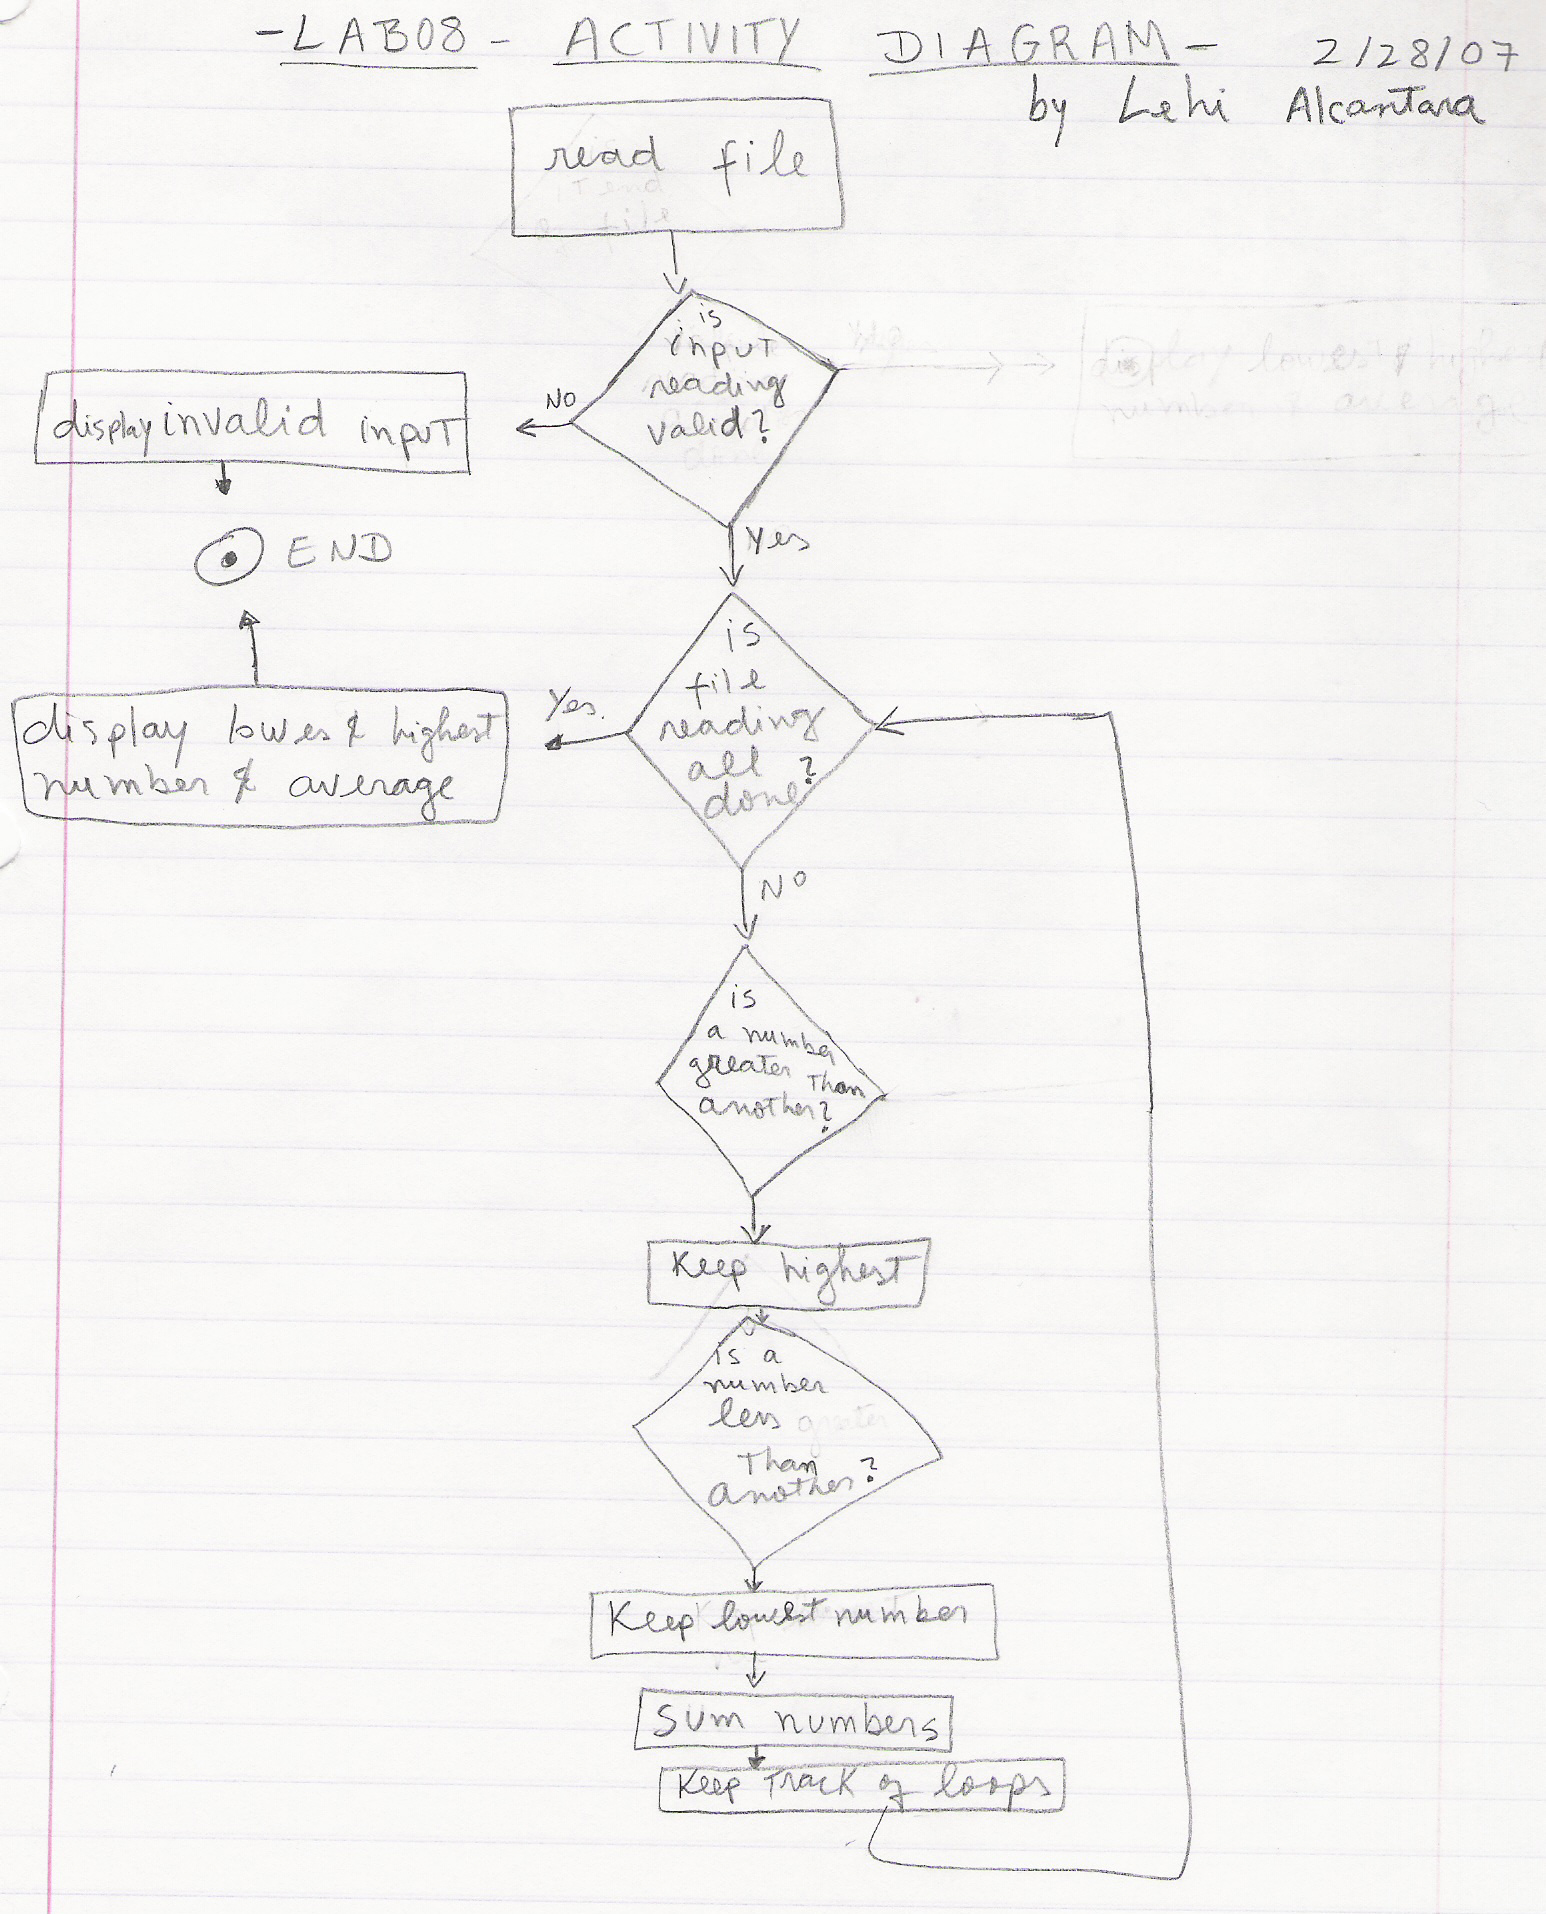 -LAB08- ACTIVITY DIAGRAM- 2/28/07
by Lehi Alcantara
read file
is
input
reading
valid?
NO
display invalid input
END
Yes
is
file
reading
all
done?
Yes.
display lowes & highest
number & average
NO
is
a number
greater than
another?
Keep highest
is a
number
less greater
Than
another?
Keep lowest number
Sum numbers
Keep Track of loops
display lowest & highest
number & average